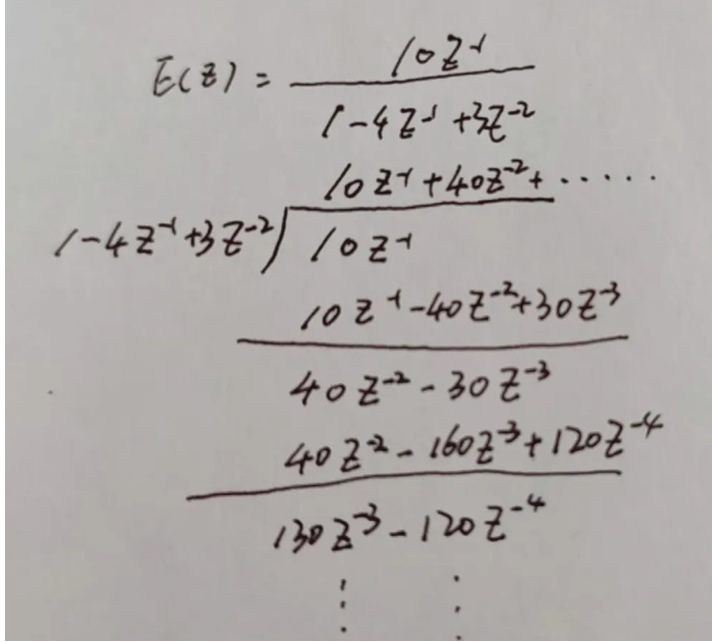 E(z) = 10z⁻¹
1-4z⁻¹+3z⁻²
10z⁻¹+40z⁻²+ ······
1-4z⁻¹+3z⁻² ) 10z⁻¹
10z⁻¹-40z⁻²+30z⁻³
40z⁻²-30z⁻³
40z⁻²-160z⁻³+120z⁻⁴
130z⁻³-120z⁻⁴
⋮ ⋮